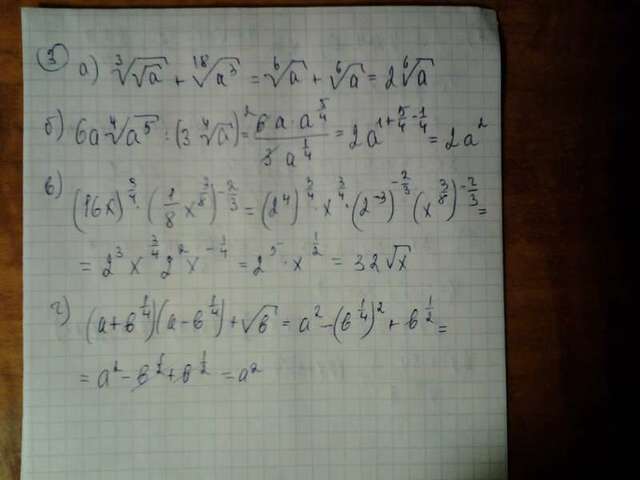 ③ а) ∛(√a) + ¹⁸√(a³) = ⁶√a + ⁶√a = 2 ⁶√a
б) 6a · ⁴√(a⁵) : (3 ⁴√a) = (6a · a^(5/4)) / (3a^(1/4)) = 2a^(1+5/4-1/4) = 2a²
в) (16x)^(3/4) · (1/8 x^(3/8))^(-2/3) = (2⁴)^(3/4) · x^(3/4) · (2⁻³)^(-2/3) (x^(3/8))^(-2/3) =
= 2³ x^(3/4) 2² x^(-1/4) = 2⁵ · x^(1/2) = 32√x
г) (a + b^(1/4))(a - b^(1/4)) + √b = a² - (b^(1/4))² + b^(1/2) =
= a² - b^(1/2) + b^(1/2) = a²